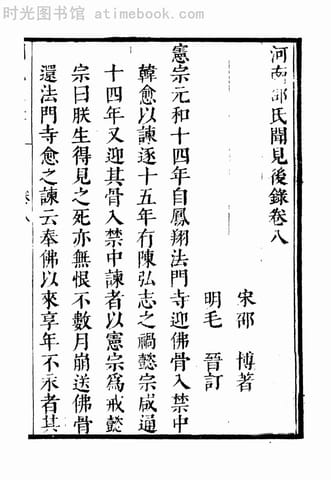 时光图书馆 www.mtoou.info
河南邵氏聞見後錄卷八
宋邵　博著
明毛　晉訂
憲宗元和十四年自鳳翔法門寺迎佛骨入禁中
韓愈以諫逐十五年有陳弘志之禍懿宗咸通
十四年又迎其骨入禁中諫者以憲宗爲戒懿
宗曰朕生得見之死亦無恨不數月崩送佛骨
還法門寺愈之諫云奉佛以來享年不永者其
卷八